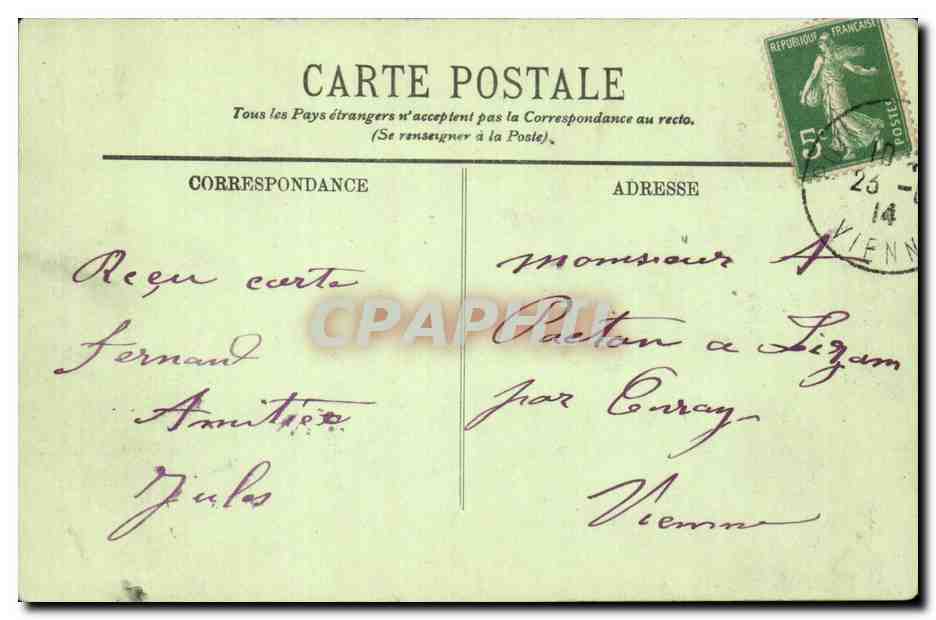 CARTE POSTALE
Tous les Pays étrangers n'acceptent pas la Correspondance au recto.
(Se renseigner à la Poste).
REPUBLIQUE FRANÇAISE
5c
POSTES
10
23
14
VIENN
CORRESPONDANCE
Reçu carte
Fernand
Amitiés
Jules
ADRESSE
Monsieur A
a
par
Vienne
CPAPHIL